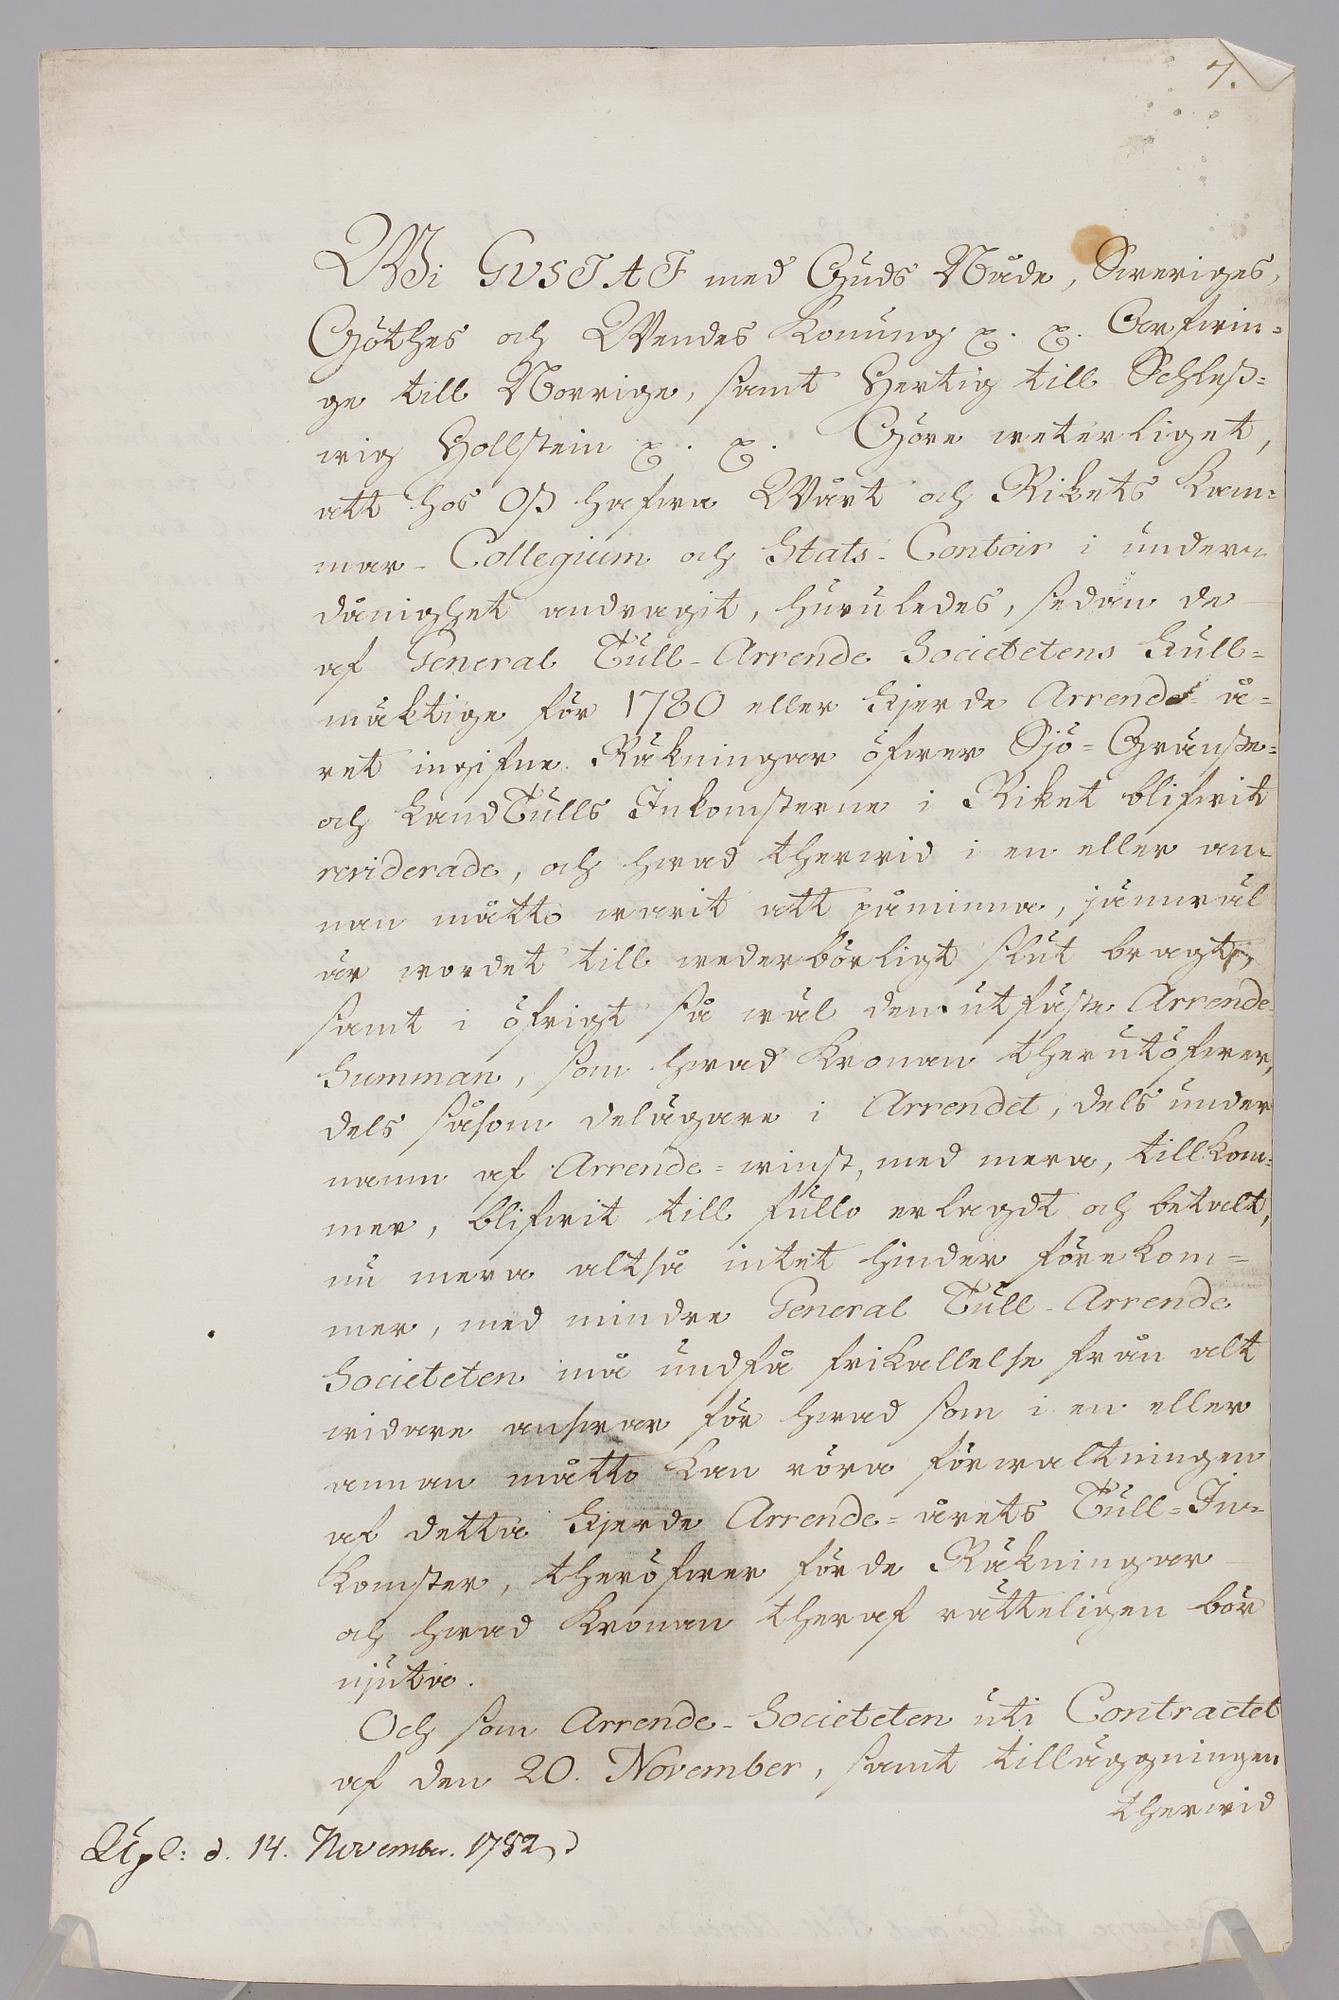 7.
Wi GUSTAF med Guds Nåde, Sweriges,
Göthes och Wendes Konung &. &. Arfwin-
ge till Norrige, samt Hertig till Schleß-
wig Hollstein &. &. Göre weterliget,
att hos Oß hafwa Wårt och Rikets Kam-
mar-Collegium och Stats-Contoir i under-
dånighet andragit, huruledes, sedan de
af General Tull-Arrende Societetens Full-
mäktige för 1780 eller Fjerde Arrende-å-
ret ingifne Räkningar öfwer Sjö-Gränße-
och Land Tulls Inkomsterne i Riket blifwit
reviderade, och hwad therwid i en eller an-
nan måtto warit att påminna, jämwäl
är wordet till wederbörligt slut bragt,
samt i öfrigt så wäl den utfäste Arrende
Summan, som hwad Kronan therutöfwer,
dels såsom delägare i Arrendet, dels under
namn af Arrende-winst, med mera, tillkom-
mer, blifwit till fullo erlagdt och betalt,
nu mera altså intet hinder förekom-
mer, med mindre General Tull-Arrende
Societeten må undfå frikallelse från alt
widare answar för hwad som i en eller
annan måtto kan röra förwaltningen
af detta Fjerde Arrende-årets Tull-In-
komster, theröfwer förde Räkningar
och hwad Kronan theraf rätteligen bör
njuta.
Och som Arrende-Societeten uti Contractet
af den 20. November, samt tilläggningen
therwid
Expl: d. 14. November. 1782